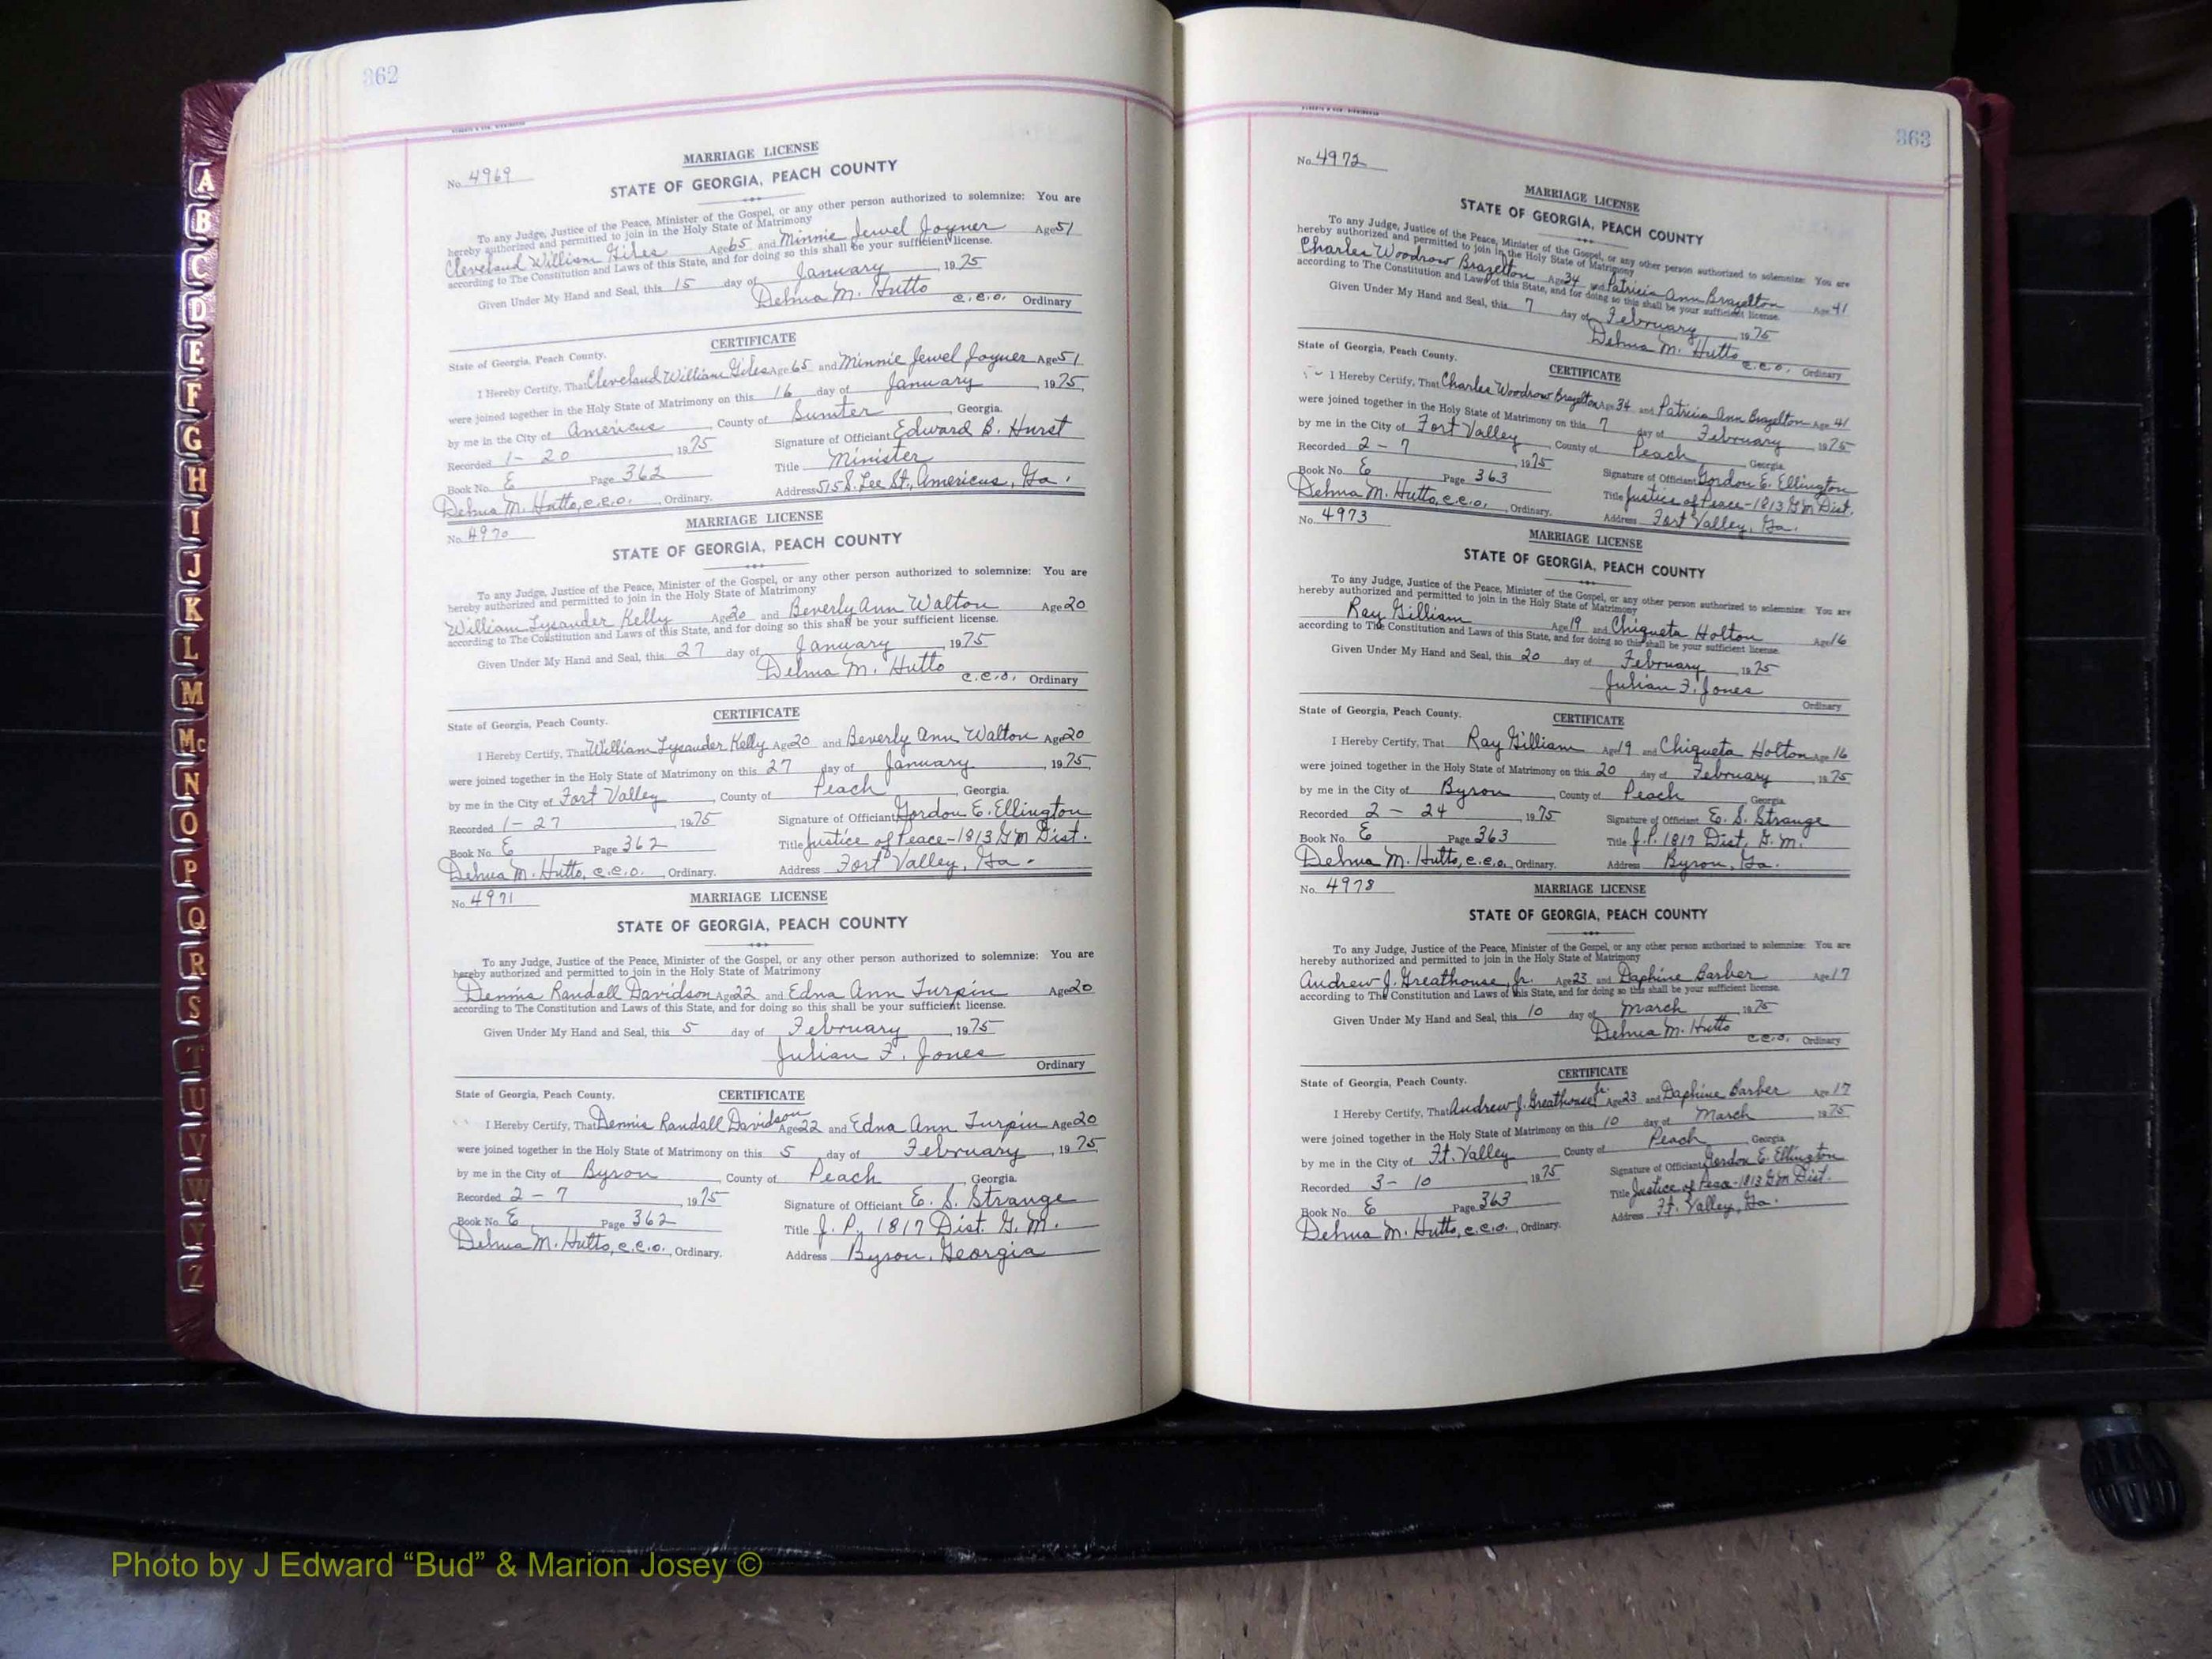 362
MARRIAGE LICENSE
No. 4969
STATE OF GEORGIA, PEACH COUNTY
To any Judge, Justice of the Peace, Minister of the Gospel, or any other person authorized to solemnize: You are
hereby authorized and permitted to join in the Holy State of Matrimony
Cleveland William Giles Age 65 and Minnie Jewel Joyner Age 51
according to The Constitution and Laws of this State, and for doing so this shall be your sufficient license.
Given Under My Hand and Seal, this 15 day of January, 1975
Delma M. Hutto
C.C.O. Ordinary
CERTIFICATE
State of Georgia, Peach County.
I Hereby Certify, That Cleveland William Giles Age 65 and Minnie Jewel Joyner Age 51
were joined together in the Holy State of Matrimony on this 16 day of January, 1975
by me in the City of Americus, County of Sumter, Georgia.
Recorded 1-20, 1975 Signature of Officiant Edward B. Hurst
Book No. E Page 362 Title Minister
Delma M. Hutto, C.C.O., Ordinary. Address 515 S. Lee St., Americus, Ga.
MARRIAGE LICENSE
No. 4970
STATE OF GEORGIA, PEACH COUNTY
To any Judge, Justice of the Peace, Minister of the Gospel, or any other person authorized to solemnize: You are
hereby authorized and permitted to join in the Holy State of Matrimony
William Lysander Kelly Age 20 and Beverly Ann Walton Age 20
according to The Constitution and Laws of this State, and for doing so this shall be your sufficient license.
Given Under My Hand and Seal, this 27 day of January, 1975
Delma M. Hutto
C.C.O. Ordinary
CERTIFICATE
State of Georgia, Peach County.
I Hereby Certify, That William Lysander Kelly Age 20 and Beverly Ann Walton Age 20
were joined together in the Holy State of Matrimony on this 27 day of January, 1975,
by me in the City of Fort Valley, County of Peach, Georgia.
Recorded 1-27, 1975 Signature of Officiant Gordon E. Ellington
Book No. E Page 362 Title Justice of Peace-1813 GM Dist.
Delma M. Hutto, C.C.O., Ordinary. Address Fort Valley, Ga.
No. 4971 MARRIAGE LICENSE
STATE OF GEORGIA, PEACH COUNTY
To any Judge, Justice of the Peace, Minister of the Gospel, or any other person authorized to solemnize: You are
hereby authorized and permitted to join in the Holy State of Matrimony
Dennis Randall Davidson Age 22 and Edna Ann Turpin Age 20
according to The Constitution and Laws of this State, and for doing so this shall be your sufficient license.
Given Under My Hand and Seal, this 5 day of February, 1975
Julian F. Jones
Ordinary
State of Georgia, Peach County. CERTIFICATE
I Hereby Certify, That Dennis Randall Davidson Age 22 and Edna Ann Turpin Age 20
were joined together in the Holy State of Matrimony on this 5 day of February, 1975,
by me in the City of Byron, County of Peach, Georgia.
Recorded 2-7, 1975 Signature of Officiant E. S. Strange
Book No. E Page 362 Title J. P. 1817 Dist. G. M.
Delma M. Hutto, C.C.O., Ordinary. Address Byron, Georgia
363
No. 4972
MARRIAGE LICENSE
STATE OF GEORGIA, PEACH COUNTY
To any Judge, Justice of the Peace, Minister of the Gospel, or any other person authorized to solemnize: You are
hereby authorized and permitted to join in the Holy State of Matrimony
Charles Woodrow Brazelton Age 34 and Patricia Ann Brazelton Age 41
according to The Constitution and Laws of this State, and for doing so this shall be your sufficient license.
Given Under My Hand and Seal, this 7 day of February, 1975
Delma M. Hutto
C.C.O. Ordinary
State of Georgia, Peach County.
CERTIFICATE
I Hereby Certify, That Charles Woodrow Brazelton Age 34 and Patricia Ann Brazelton Age 41
were joined together in the Holy State of Matrimony on this 7 day of February, 1975
by me in the City of Fort Valley, County of Peach, Georgia
Recorded 2-7, 1975 Signature of Officiant Gordon E. Ellington
Book No. E Page 363 Title Justice of Peace-1813 GM Dist.
Delma M. Hutto, C.C.O., Ordinary. Address Fort Valley, Ga.
No. 4973
MARRIAGE LICENSE
STATE OF GEORGIA, PEACH COUNTY
To any Judge, Justice of the Peace, Minister of the Gospel, or any other person authorized to solemnize: You are
hereby authorized and permitted to join in the Holy State of Matrimony
Ray Gilliam Age 19 and Chiqueta Holton Age 16
according to The Constitution and Laws of this State, and for doing so this shall be your sufficient license.
Given Under My Hand and Seal, this 20 day of February, 1975
Julian F. Jones
Ordinary
State of Georgia, Peach County.
CERTIFICATE
I Hereby Certify, That Ray Gilliam Age 19 and Chiqueta Holton Age 16
were joined together in the Holy State of Matrimony on this 20 day of February, 1975
by me in the City of Byron, County of Peach, Georgia
Recorded 2-24, 1975 Signature of Officiant E. S. Strange
Book No. E Page 363 Title J.P. 1817 Dist. G. M.
Delma M. Hutto, C.C.O., Ordinary. Address Byron, Ga.
No. 4978 MARRIAGE LICENSE
STATE OF GEORGIA, PEACH COUNTY
To any Judge, Justice of the Peace, Minister of the Gospel, or any other person authorized to solemnize: You are
hereby authorized and permitted to join in the Holy State of Matrimony
Andrew J. Greathouse, Jr. Age 23 and Daphine Barber Age 17
according to The Constitution and Laws of this State, and for doing so this shall be your sufficient license.
Given Under My Hand and Seal, this 10 day of March, 1975
Delma M. Hutto
C.C.O. Ordinary
CERTIFICATE
State of Georgia, Peach County.
I Hereby Certify, That Andrew J. Greathouse, Jr. Age 23 and Daphine Barber Age 17
were joined together in the Holy State of Matrimony on this 10 day of March, 1975
by me in the City of Ft. Valley, County of Peach, Georgia
Recorded 3-10, 1975 Signature of Officiant Gordon E. Ellington
Book No. E Page 363 Title Justice of Peace-1813 GM Dist.
Delma M. Hutto, C.C.O., Ordinary. Address Ft. Valley, Ga.
A
B
C
D
E
F
G
H
I
J
K
L
M
Mc
N
O
P
Q
R
S
T
U
V
W
Y
Z
Photo by J Edward “Bud” & Marion Josey ©